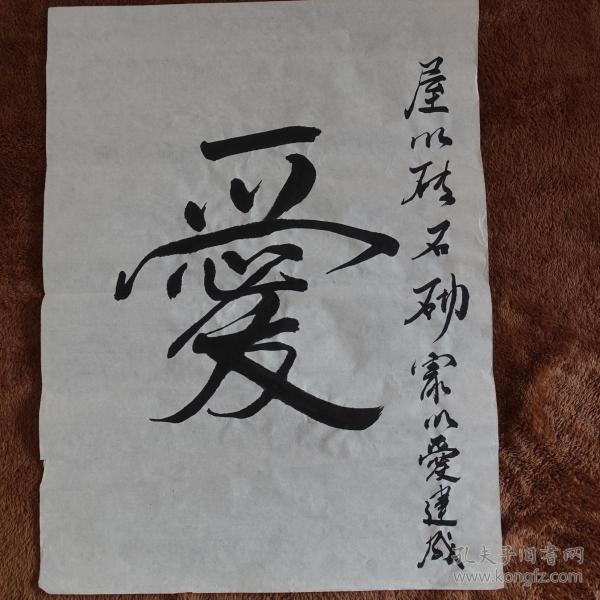 愛
屋以砖石砌家以愛建成
孔夫子旧书网
www.kongfz.com